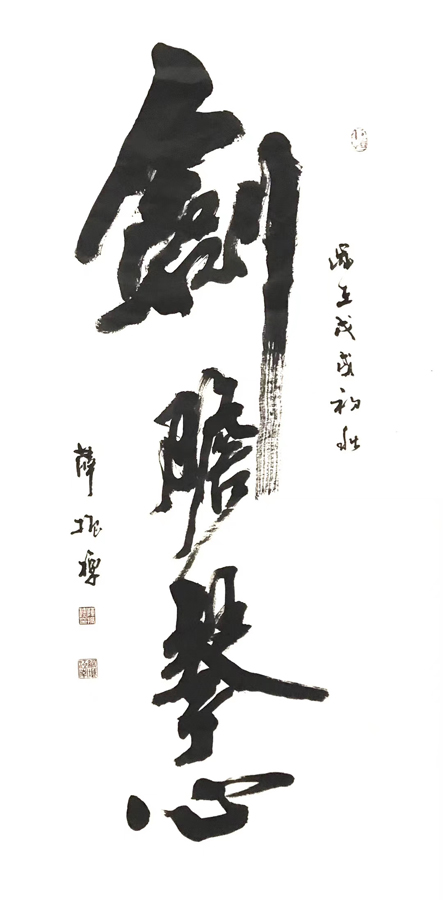 歲在戊戌初秋
劍膽琴心
薛